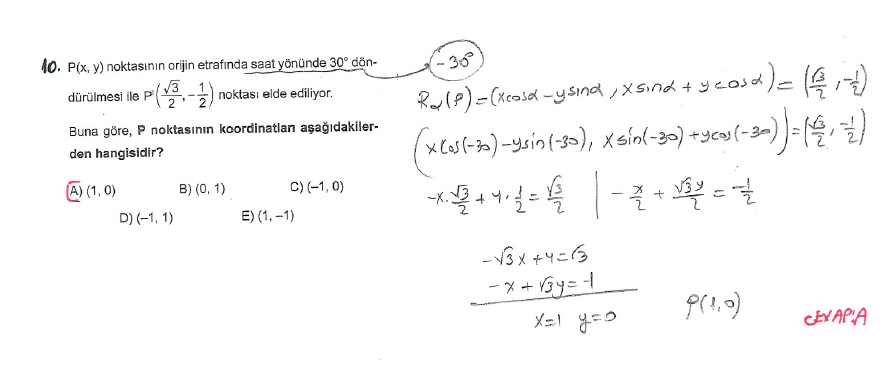 10. P(x, y) noktasının orijin etrafında saat yönünde 30° dön-
dürülmesi ile P'(√3/2, -1/2) noktası elde ediliyor.
Buna göre, P noktasının koordinatları aşağıdakiler-
den hangisidir?
A) (1, 0) B) (0, 1) C) (–1, 0)
D) (–1, 1) E) (1, –1)
-30°
Rα(P) = (xcosα - ysinα, xsinα + ycosα) = (√3/2, -1/2)
(xcos(-30) - ysin(-30), xsin(-30) + ycos(-30)) = (√3/2, -1/2)
-x.√3/2 + y.1/2 = √3/2 | -x/2 + √3y/2 = -1/2
-√3x + y = √3
-x + √3y = -1
x=1 y=0
P(1,0)
CEVAP:A